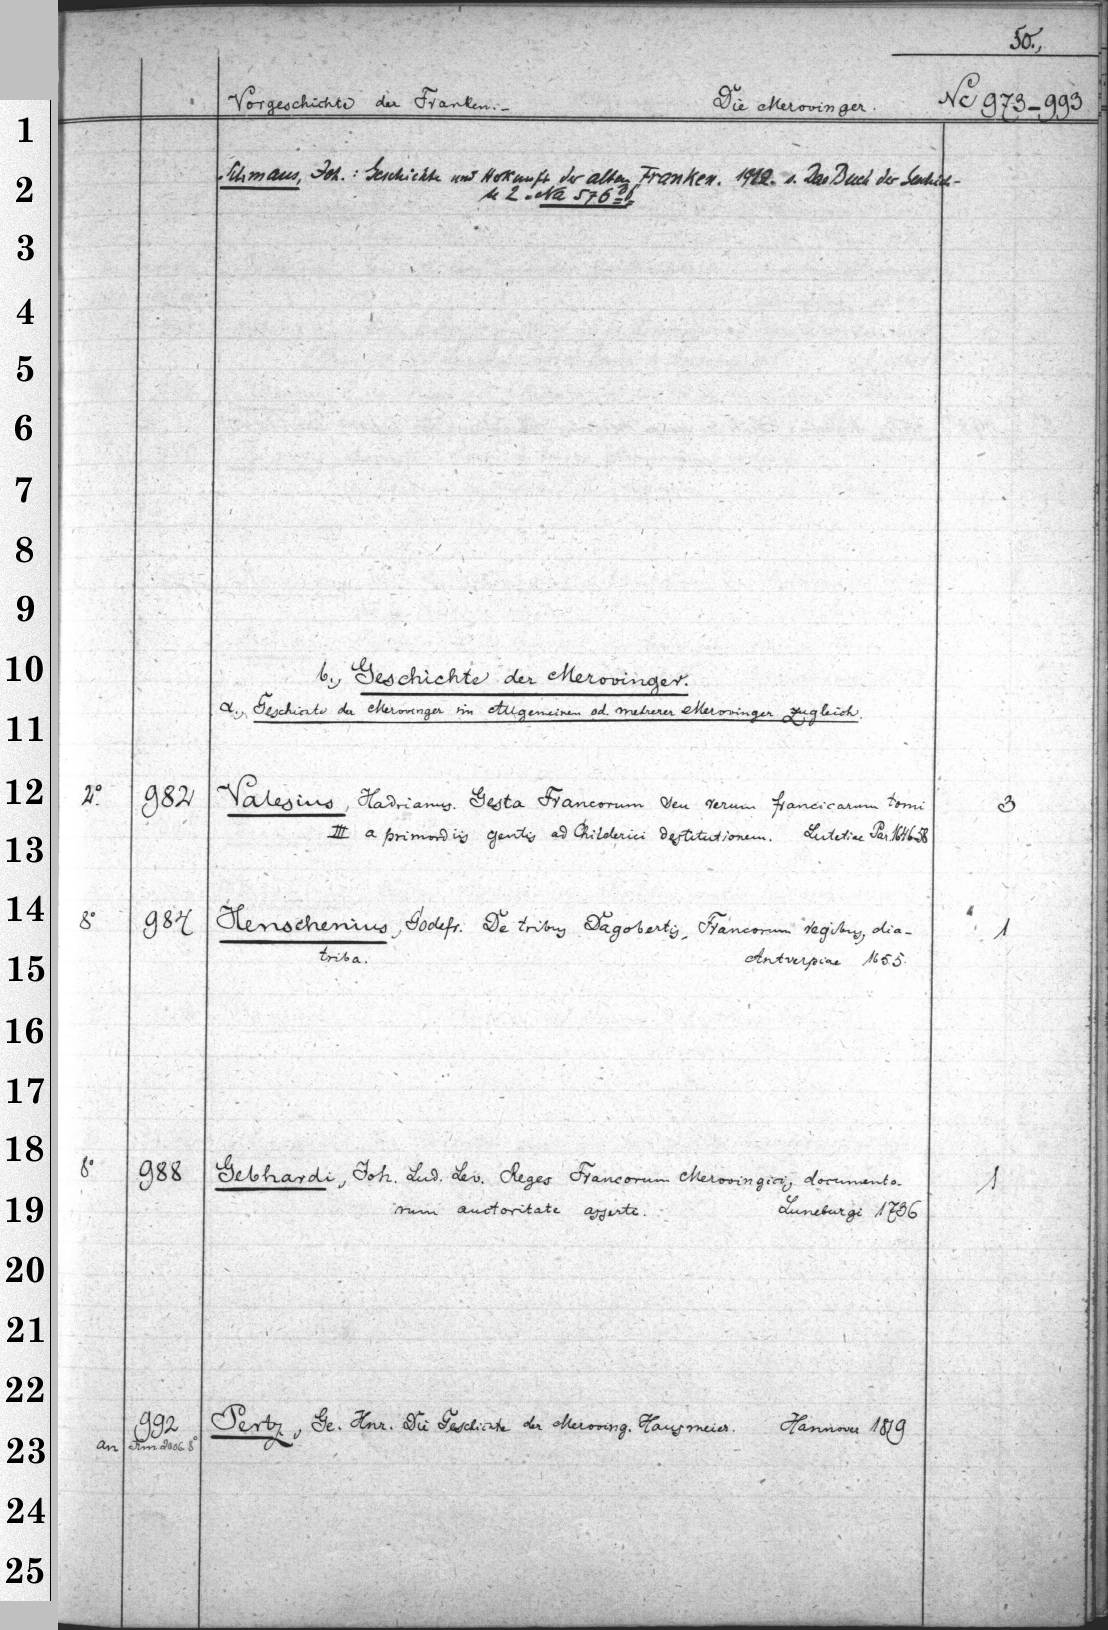 50.,
Vorgeschichte der Franken.- Die Merovinger. Nc 973-993
1
2 Schmaus, Joh.: Geschichte und Herkunft der alten Franken. 1912. s. Das Buch der Geschich-
te 2. Na 576
3
4
5
6
7
8
9
10 b., Geschichte der Merovinger.
11 α., Geschichte der Merovinger im Allgemeinen od. mehrerer Merovinger zugleich.
12 2° 982 Valesius, Hadrianus. Gesta Francorum seu rerum francicarum tomi 3
13 III a primordiis gentis ad Childerici destitutionem. Lutetiae Par. 1646-58
14 8° 984 Henschenius, Godefr. De tribus Dagobertis, Francorum regibus, dia- 1
15 triba. Antverpiae 1655.
16
17
18 8° 988 Gebhardi, Joh. Lud. Lev. Reges Francorum Merovingici, documento- 1
19 rum auctoritate asserti. Luneburgi 1736
20
21
22
992 Pertz, Ge. Hnr. Die Geschichte der Meroving. Hausmeier. Hannover 1819
23 an 8°
24
25